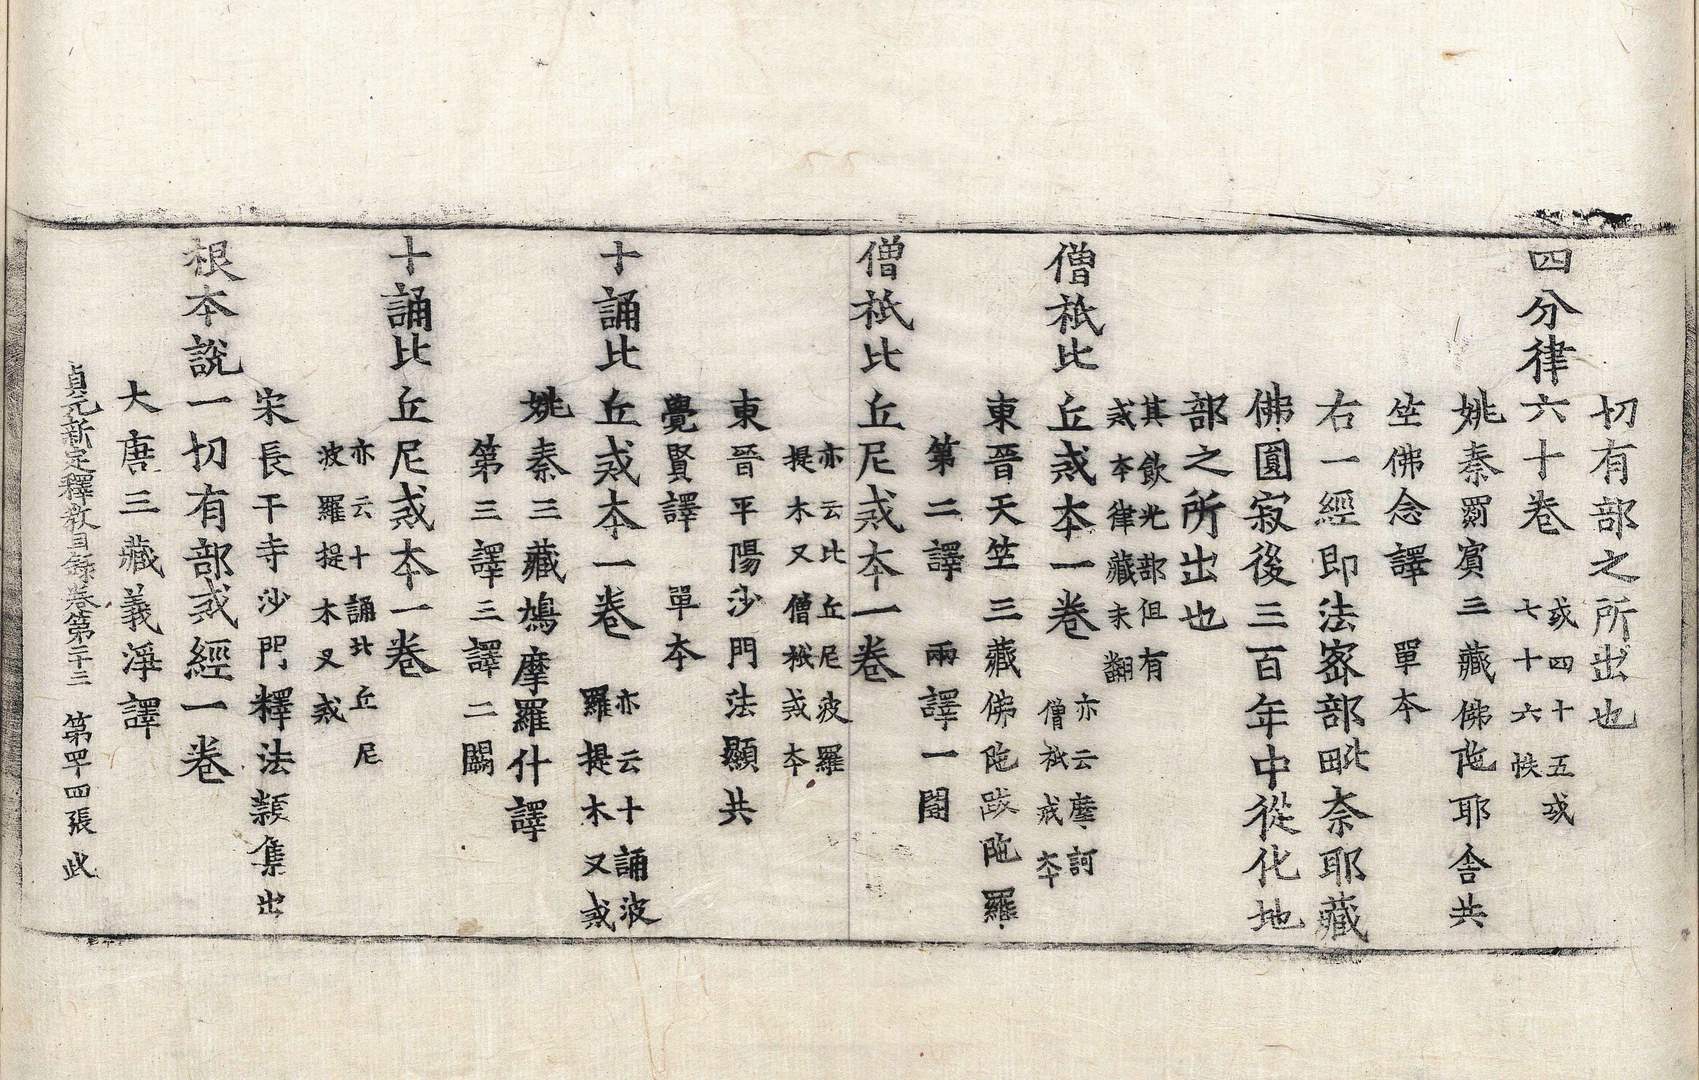 切有部之所出也
四分律六十卷 或四十五或七十六帙
姚秦罽賓三藏佛陁耶舍共
竺佛念譯 單本
右一經即法密部毗奈耶藏
佛圓寂後三百年中從化地
部之所出也
其飲光部但有
戒本律藏未翻
僧祇比丘戒本一卷 亦云摩訶僧祇戒本
東晉天竺三藏佛陁跋陁羅
第二譯 兩譯一闕
僧祇比丘尼戒本一卷
亦云比丘尼波羅
提木叉僧祇戒本
東晉平陽沙門法顯共
覺賢譯 單本
十誦比丘戒本一卷 亦云十誦波羅提木叉戒
姚秦三藏鳩摩羅什譯
第三譯三譯二闕
十誦比丘尼戒本一卷
亦云十誦比丘尼
波羅提木叉戒
宋長干寺沙門釋法頴集出
根本說一切有部戒經一卷
大唐三藏義淨譯
貞元新定釋教目錄卷第二十三 第四十四張 此